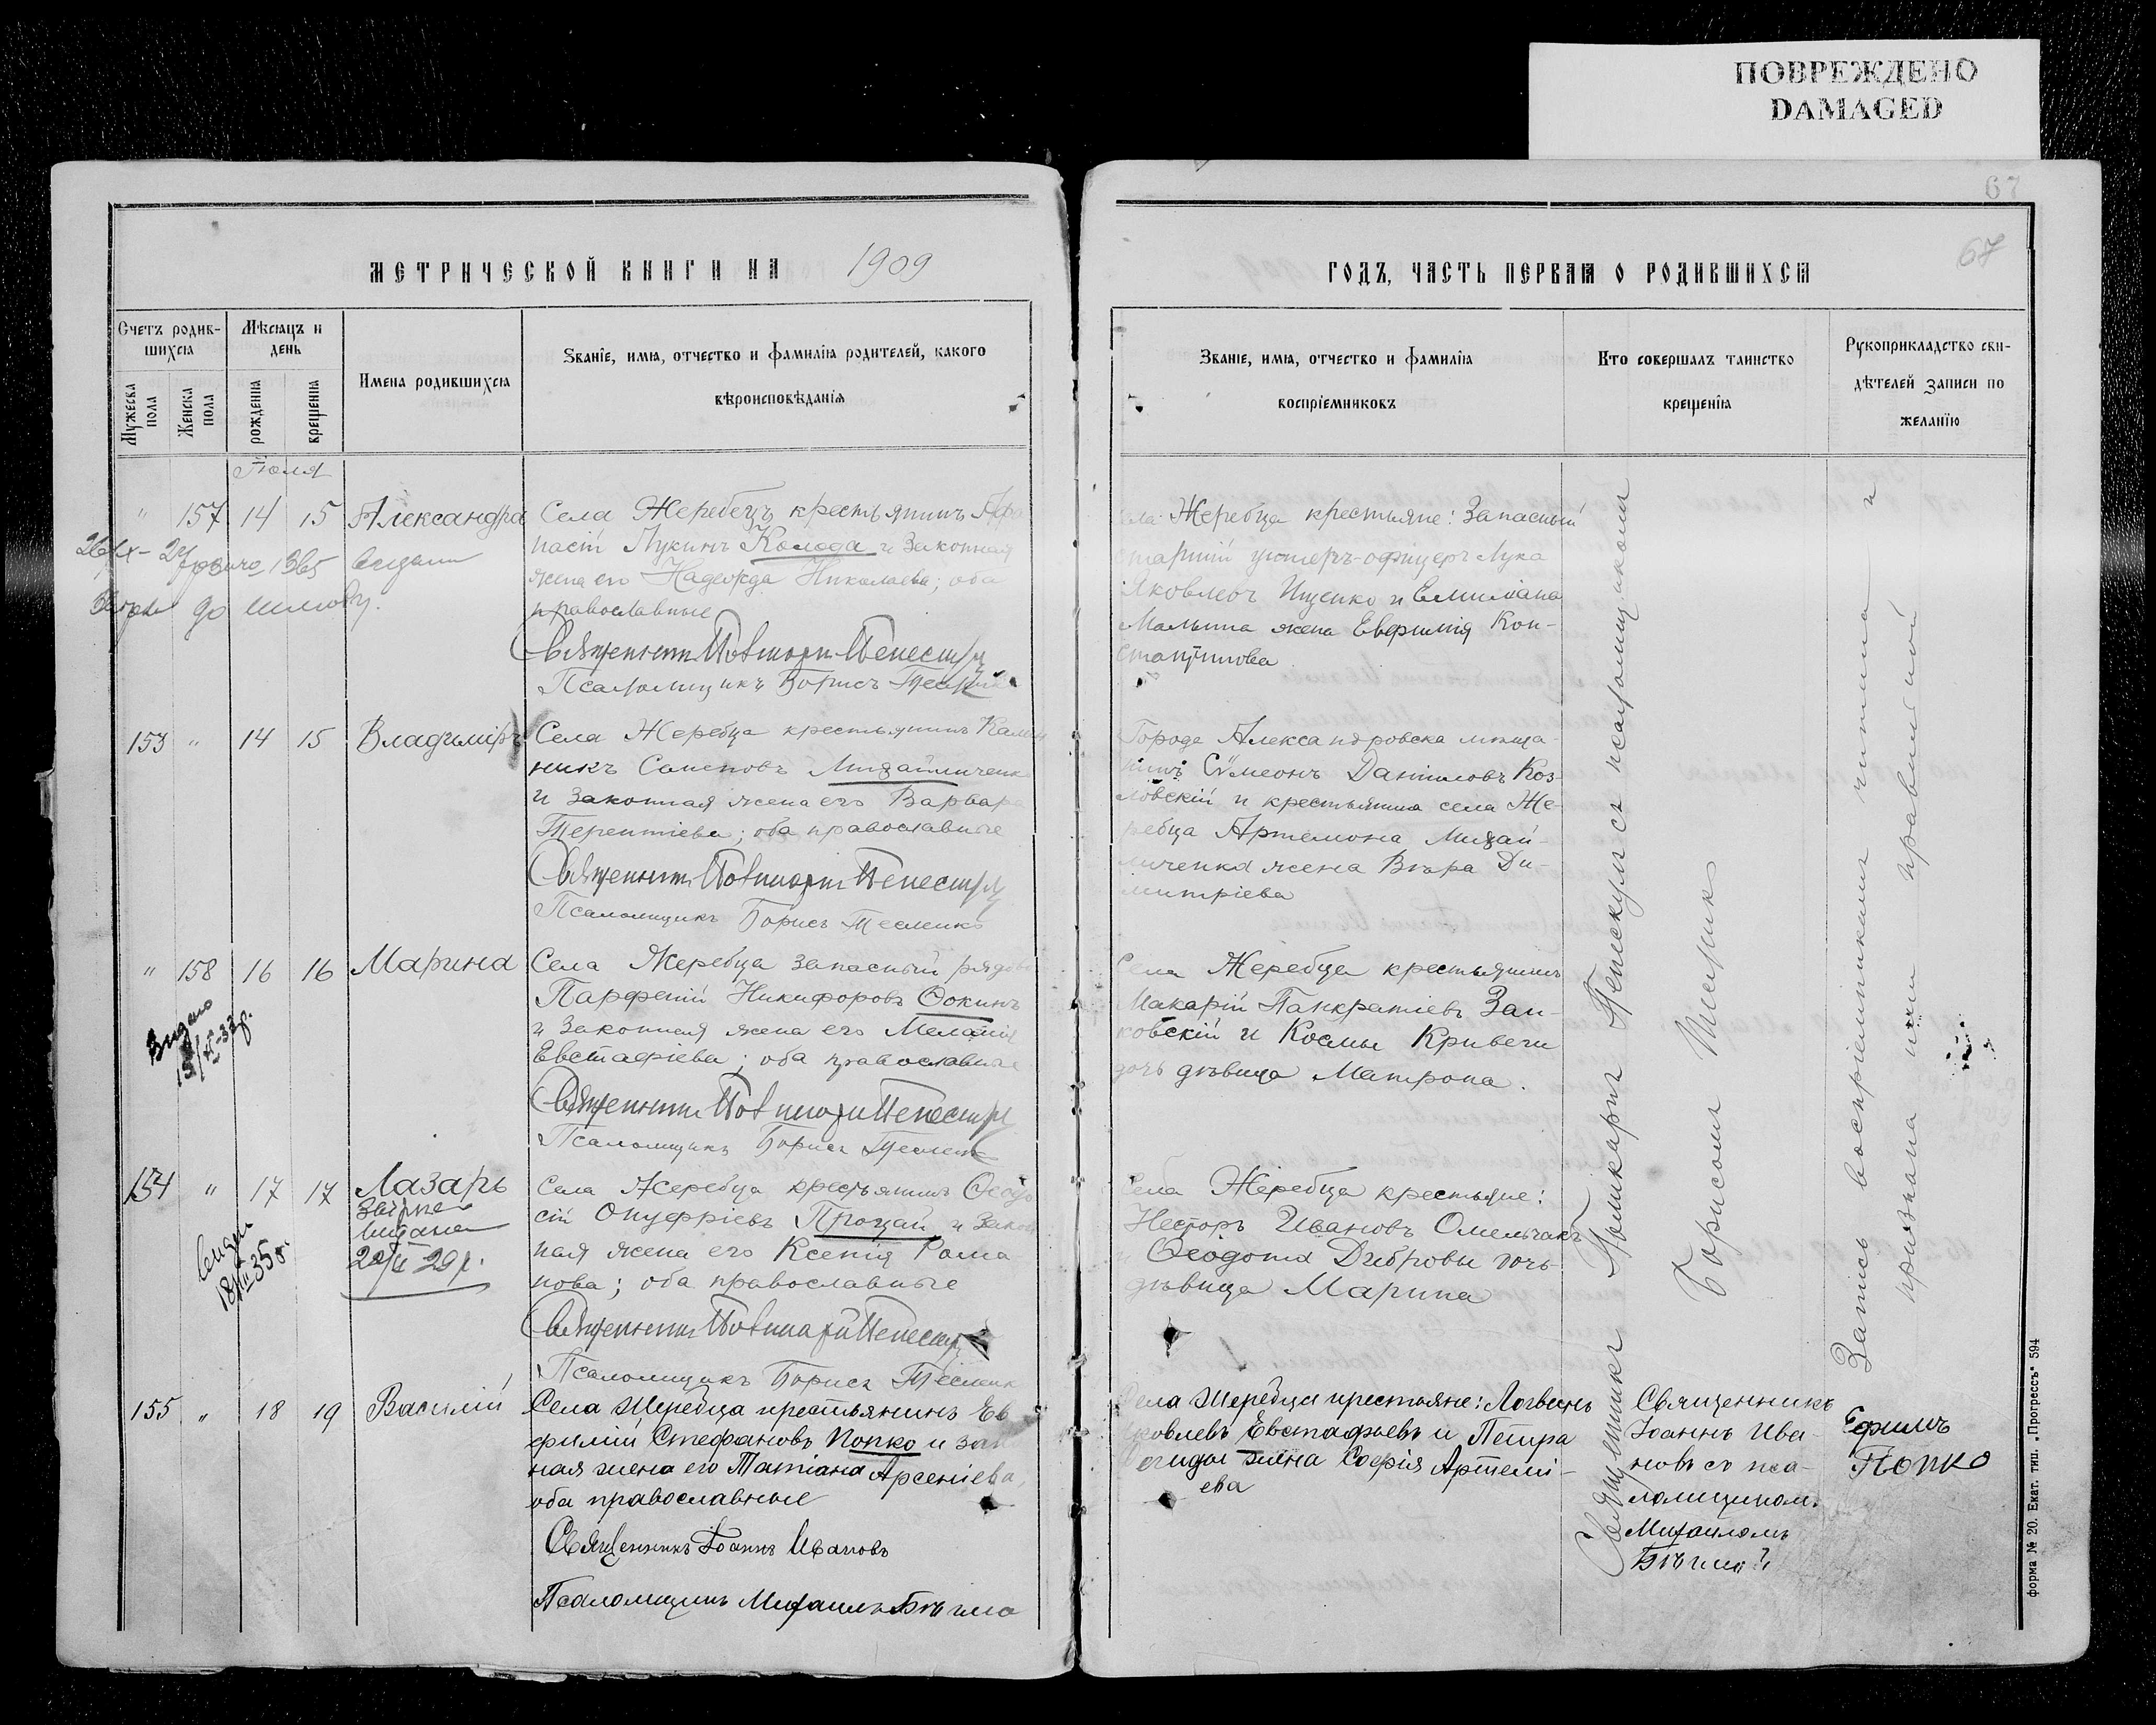 ПОВРЕЖДЕНО
DAMAGED
67
67
МЕТРИЧЕСКОЙ КНИГИ НА 1909
ГОДЪ, ЧАСТЬ ПЕРВАЯ О РОДИВШИХСЯ
Счетъ родив-
шихся
Мужеска пола
Женска пола
Мѣсяцъ и
день
рожденія
крещенія
Имена родившихся
Званіе, имя, отчество и фамилія родителей, какого
вѣроисповѣданія
Званіе, имя, отчество и фамилія
воспріемниковъ
Кто совершалъ таинство
крещенія
Рукоприкладство сви-
дѣтелей записи по
желанію
Іюля
" 157 14 15 Александра
Села Жеребецъ крестьянинъ Афа
насій Лукинъ Колода и законная
жена его Надежда Николаева; оба
православные
Священникъ
Псаломщикъ Борисъ
Жеребца крестьяне: Запасный
старшій унтеръ-офицеръ Лука
Яковлевъ Ищенко и Емиліана
Малыша жена Евфимія Кон-
стантинова
153 " 14 15 Владиміръ
Села Жеребца крестьянинъ Калин
никъ Самсоновъ Михайличенко
и законная жена его Варвара
Терентіева; оба православные
Священникъ
Псаломщикъ Борисъ
Города Александровска мѣща-
нинъ Сѵмеонъ Даниловъ Коз-
ловскій и крестьянина села Же-
ребца Артемона Михай-
личенка жена Вѣра Ди-
митріева
" 158 16 16 Марина
Видано
Села Жеребца запасный рядово
Парфеній Никифоровъ Ѳокинъ
и законная жена его Меланія
Евстафіева; оба православные
Священникъ
Псаломщикъ Борисъ
Села Жеребца крестьянинъ
Макарій Панкратіевъ Зан-
ковскій и Космы Кривеги
дочь дѣвица Матрона.
154 " 17 17 Лазарь
видана
Села Жеребца крестьянинъ Ѳеодо
сій Онуфріевъ Прощай и закон
ная жена его Ксенія Рома
нова; оба православные
Священникъ
Псаломщикъ Борисъ
Села Жеребца крестьяне:
Несторъ Ивановъ Омельчакъ
и Ѳеодота Дибровы дочь
дѣвица Марина
155 " 18 19 Василій
Села Жеребца крестьянинъ Ев
фимій Стефановъ Попко и зак
ная жена его Татіана Арсеніева,
оба православные
Священникъ Іоаннъ Ивановъ
Псаломщикъ Михаилъ Бѣгма
Села Жеребца крестьяне: Логвинъ
Яковлевъ Евстафьевъ и Петра
жена Софія Артемі-
ева
Священникъ
Іоаннъ Ива-
новъ съ пса-
ломщикомъ
Михаиломъ
Ефимъ
Попко
Священникъ Поликарпъ съ псаломщикомъ
Борисомъ
Запись воспріемниками читана и
признана ими правильной
форма № 20. Екат. тип. „Прогрессъ" 594